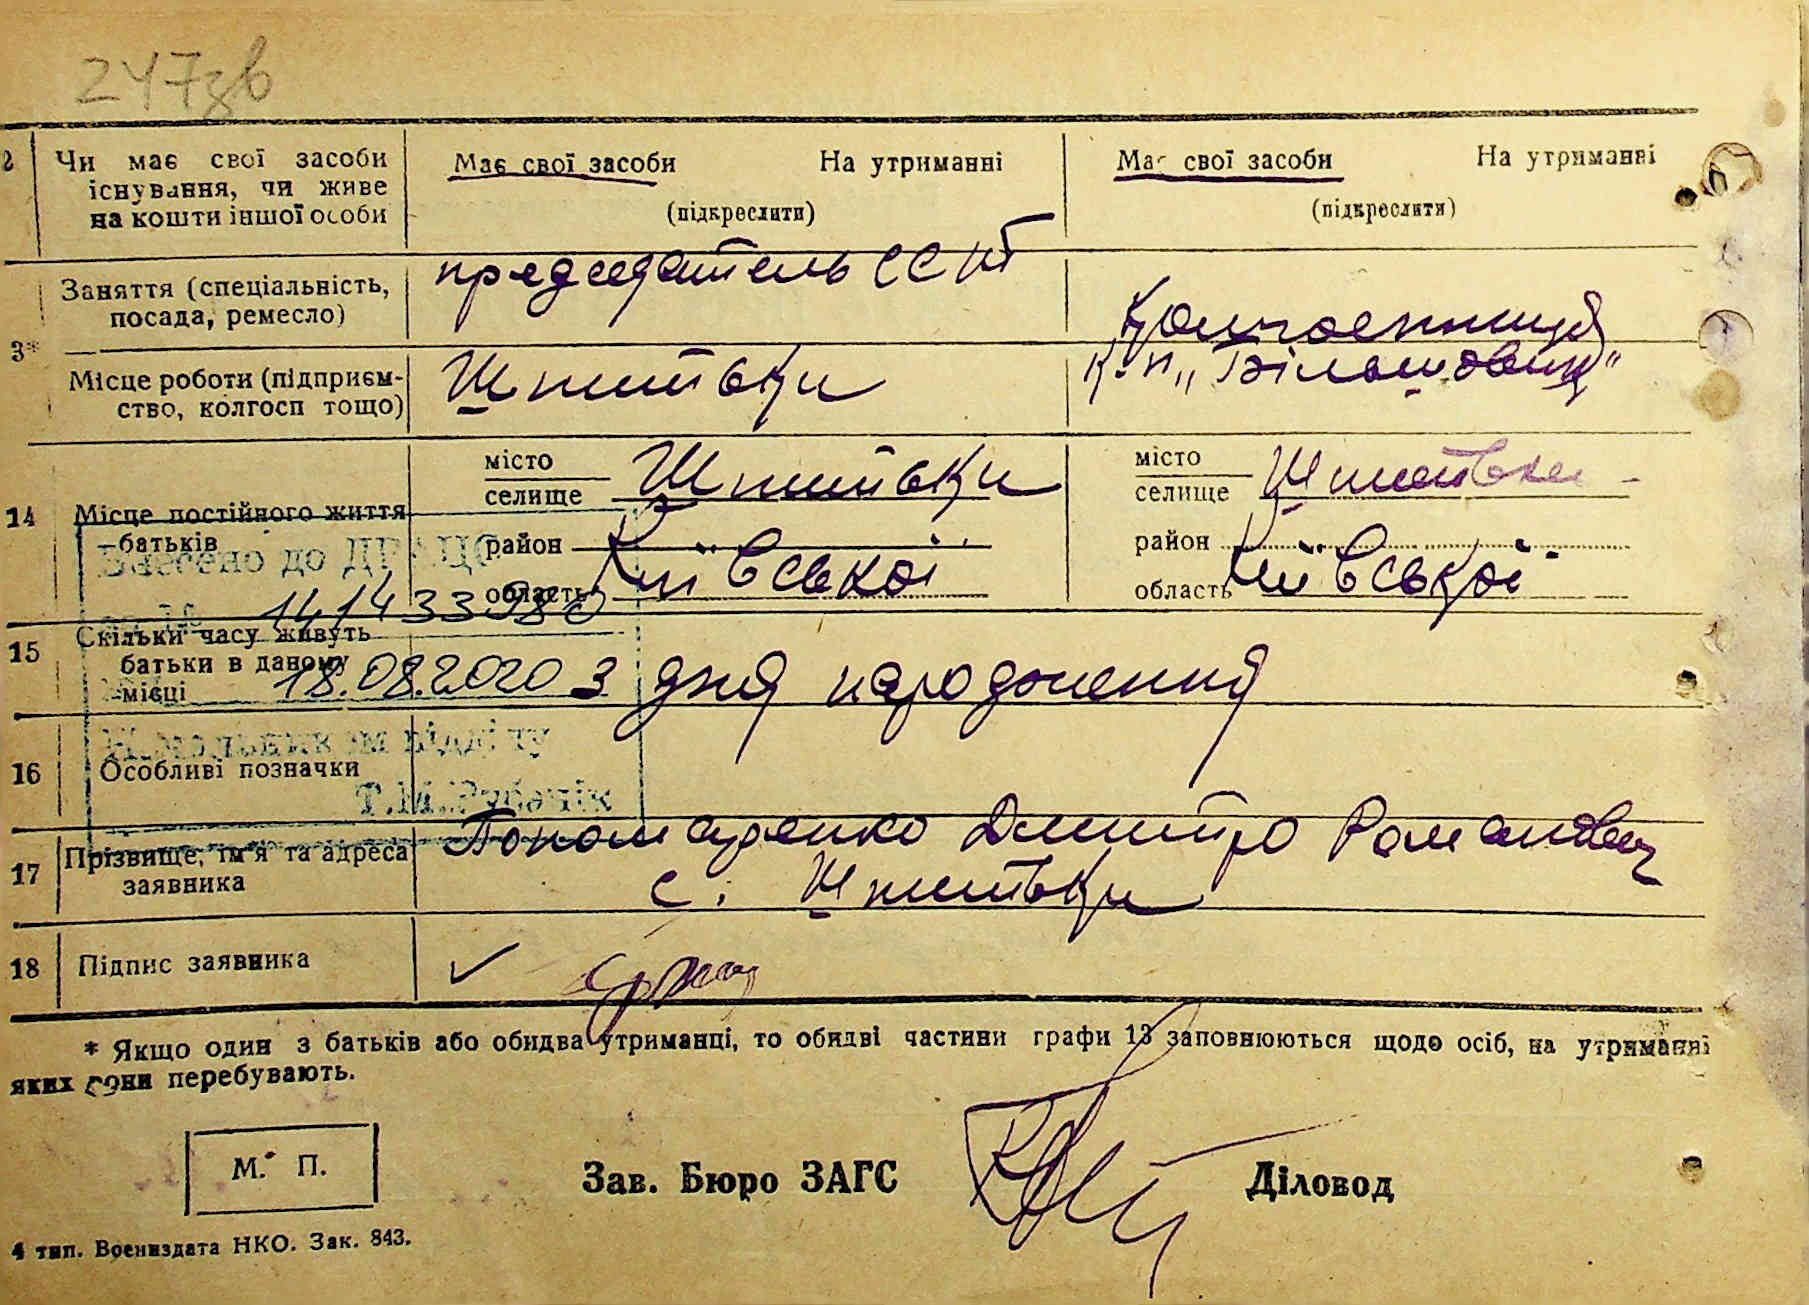 247зв
2 Чи має свої засоби існування, чи живе на кошти іншої особи
Має свої засоби На утриманні
(підкреслити)
Має свої засоби На утриманні
(підкреслити)
3*
Заняття (спеціальність, посада, ремесло)
председатель
Місце роботи (підприєм-
ство, колгосп тощо)
Шпитьки
к-п „Більшовик"
14 Місце постійного життя
батьків
місто
селище Шпитьки
район
область Київської
місто
селище Шпитьки
район
область Київської
Внесено до
18.08.2020
15 Скільки часу живуть
батьки в даному
місці
З дня народження
16 Особливі позначки
17 Прізвище, ім'я та адреса
заявника
Пономаренко Дмитро Романович
с. Шпитьки
18 Підпис заявника
* Якщо один з батьків або обидва утриманці, то обидві частини графи 13 заповнюються щодо осіб, на утриманні
яких вони перебувають.
М. П.
Зав. Бюро ЗАГС
Діловод
4 тип. Воениздата НКО. Зак. 843.